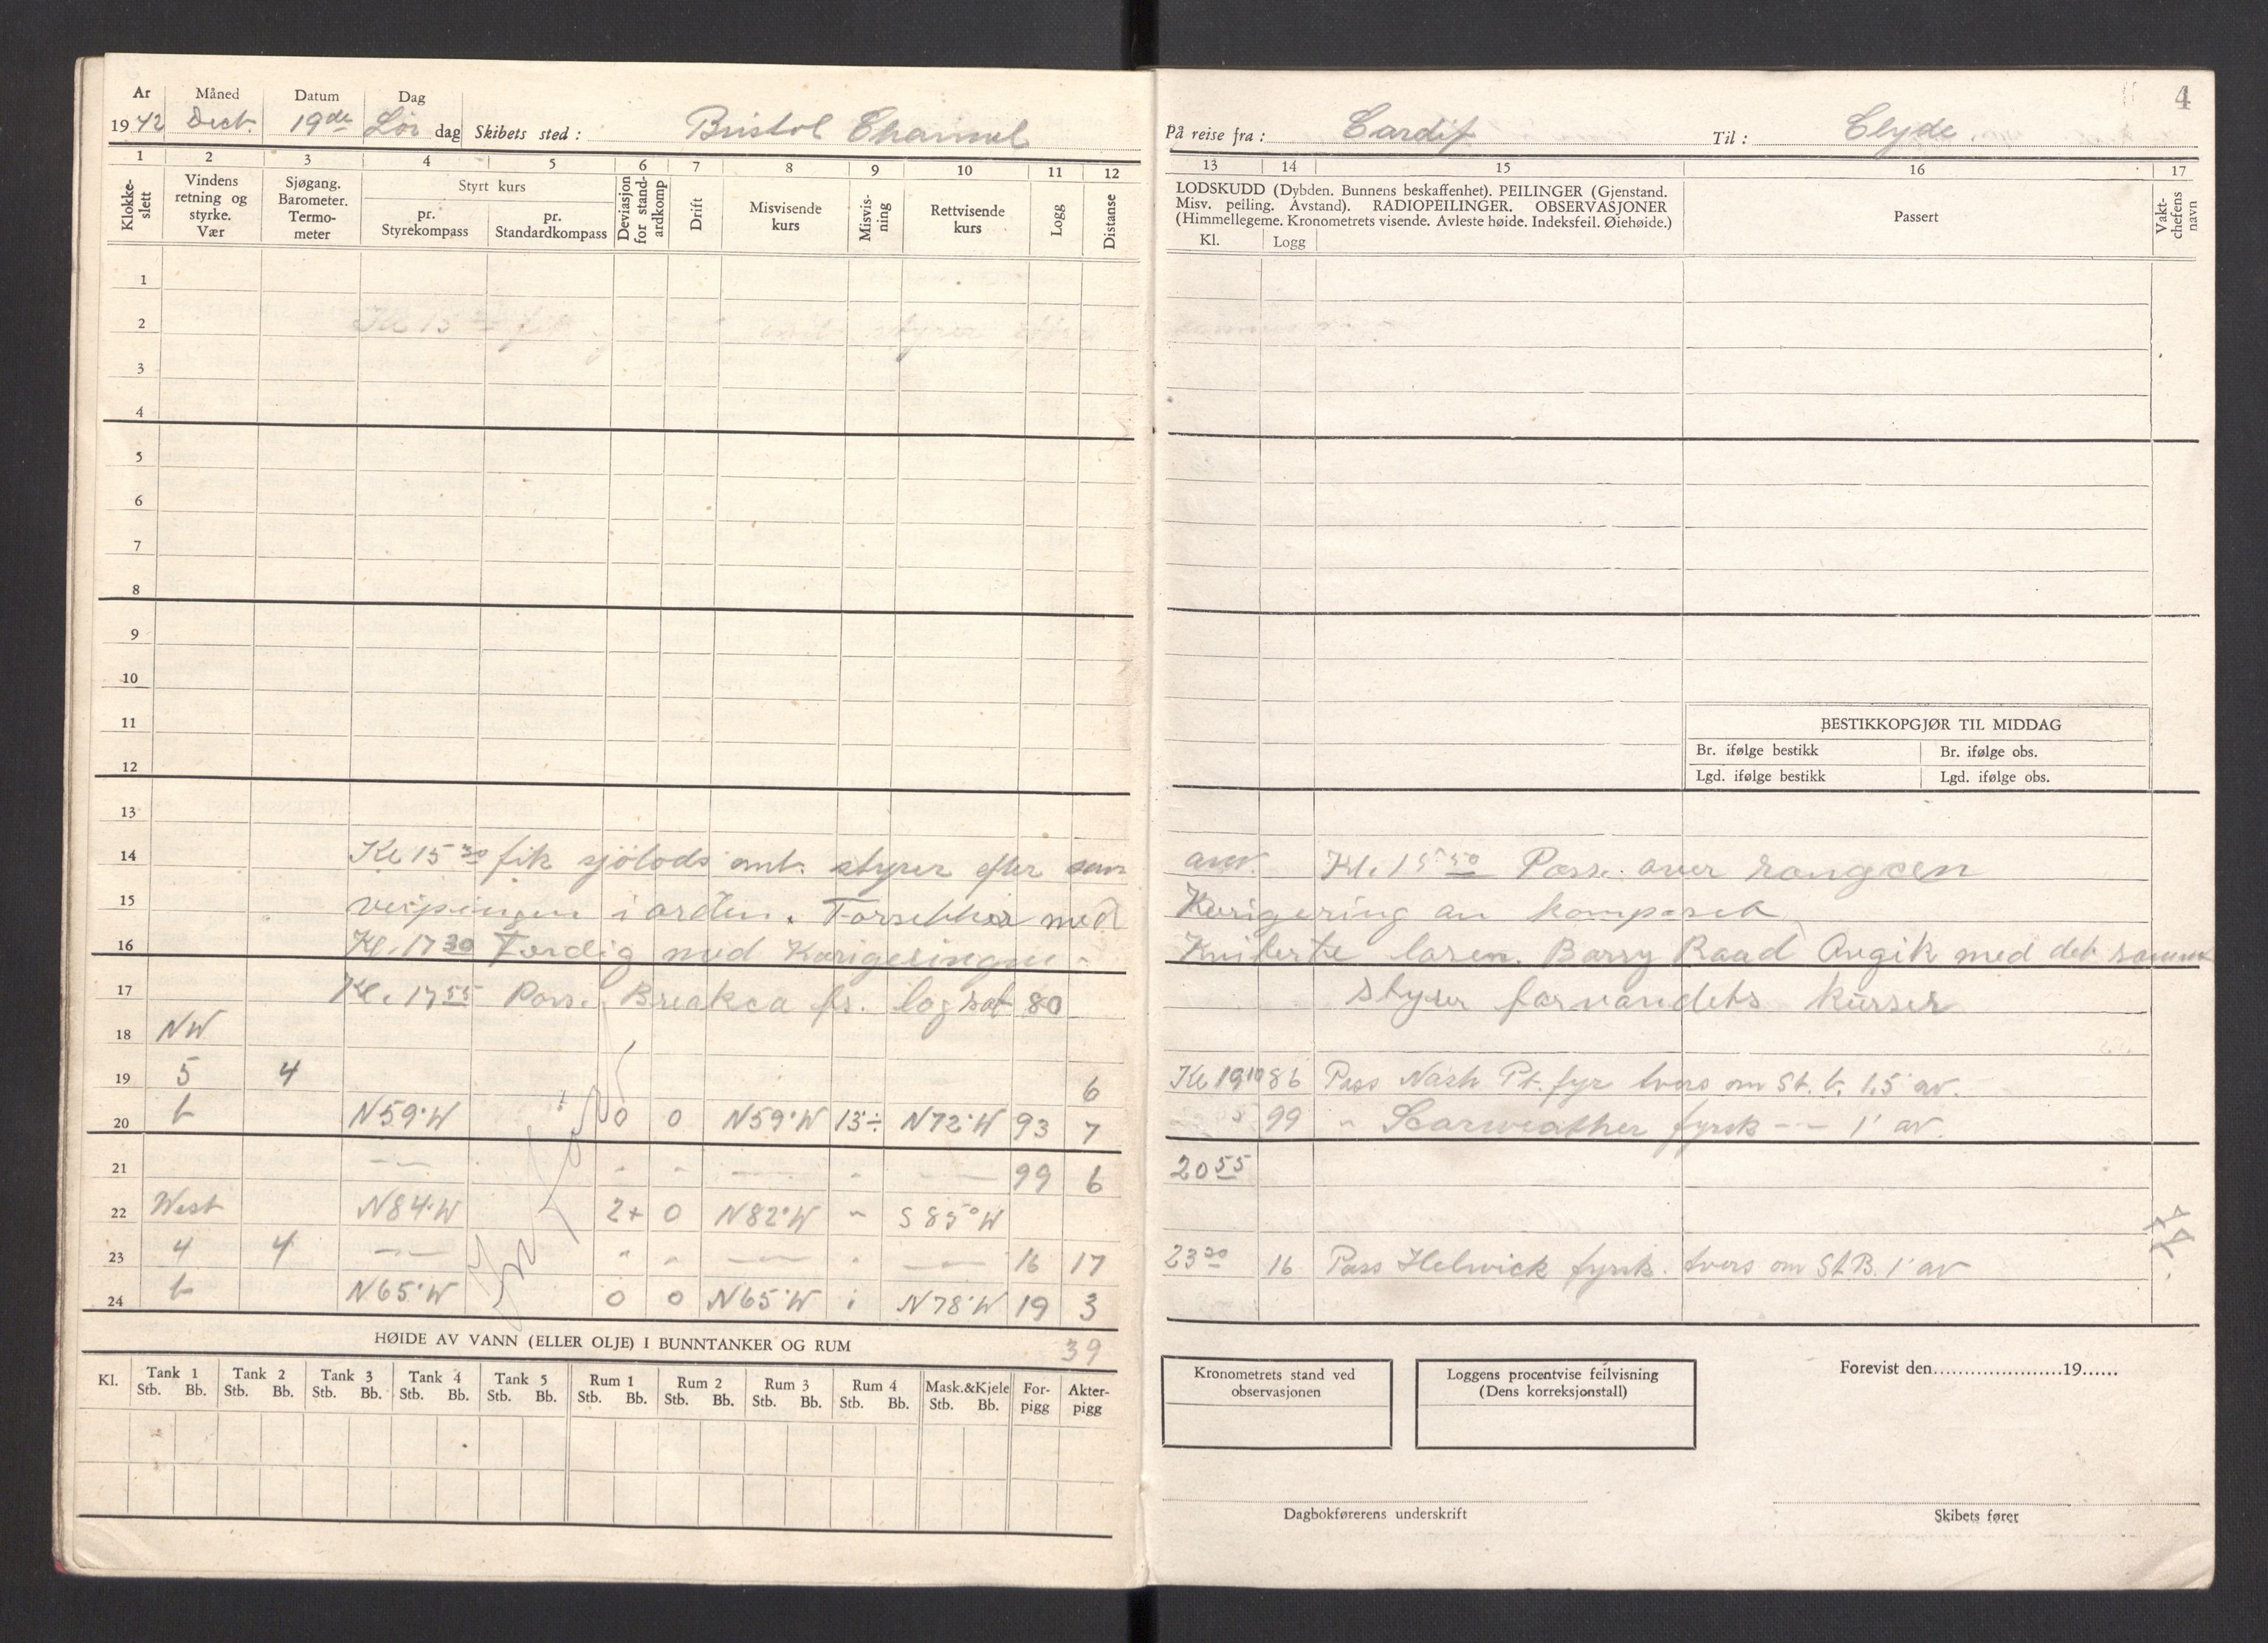 4
Ar Måned Datum Dag
1942 Dect. 19de Lör dag Skibets sted: Bristol Channel På reise fra: Cardif Til: Clyde.
1 2 3 4 5 6 7 8 9 10 11 12 13 14 15 16 17
Klokke-slett
Vindens retning og styrke. Vær
Sjøgang. Barometer. Termo-meter
Styrt kurs
pr. Styrekompass
pr. Standardkompass
Deviasjon for stand-ardkomp
Drift
Misvisende kurs
Misvis-ning
Rettvisende kurs
Logg
Distanse
LODSKUDD (Dybden. Bunnens beskaffenhet). PEILINGER (Gjenstand.
Misv. peiling. Avstand). RADIOPEILINGER. OBSERVASJONER
(Himmellegeme. Kronometrets visende. Avleste høide. Indeksfeil. Øiehøide.)
Kl. Logg
Passert
Vakt-chefens navn
1
2
3
4
5
6
7
8
9
10
11
BESTIKKOPGJØR TIL MIDDAG
Br. ifølge bestikk Br. ifølge obs.
12
Lgd. ifølge bestikk Lgd. ifølge obs.
13
14 Kl 15 30 fik sjölods omb. styrer efter Kl. 15 50 Pass. over
15 i orden. med Korigering av
16 Kl. 17 30 Færdig med Korigeringen Barry Raad Avgik med det samme
17 Kl. 17 55 Pass. Breaksea fs. log sat 80 styrer farvandets kurser
18 NW
19 5 4 6 Kl 19 10 86 Pass Nash Pt. fyr tvers om St. b. 1,5' av.
20 b N59°W 0 0 N59°W 13÷ N72°W 93 7 99 " Scarweather fyrsk — — 1' av.
21 — " " — " — 99 6 20 55
22 West N84°W 2+ 0 N82°W " S85°W
23 4 4 — " " — " — 16 17 23 20 16 Pass Helwick fyrsk. tvers om St.B. 1' av
24 b N65°W 0 0 N65°W N78°W 19 3
39
HØIDE AV VANN (ELLER OLJE) I BUNNTANKER OG RUM
Kl. Tank 1 Tank 2 Tank 3 Tank 4 Tank 5 Rum 1 Rum 2 Rum 3 Rum 4 Mask.&Kjele For-pigg Akter-pigg
Stb. Bb. Stb. Bb. Stb. Bb. Stb. Bb. Stb. Bb. Stb. Bb. Stb. Bb. Stb. Bb. Stb. Bb. Stb. Bb.
Kronometrets stand ved observasjonen
Loggens procentvise feilvisning
(Dens korreksjonstall)
Forevist den 19
Dagbokførerens underskrift
Skibets fører